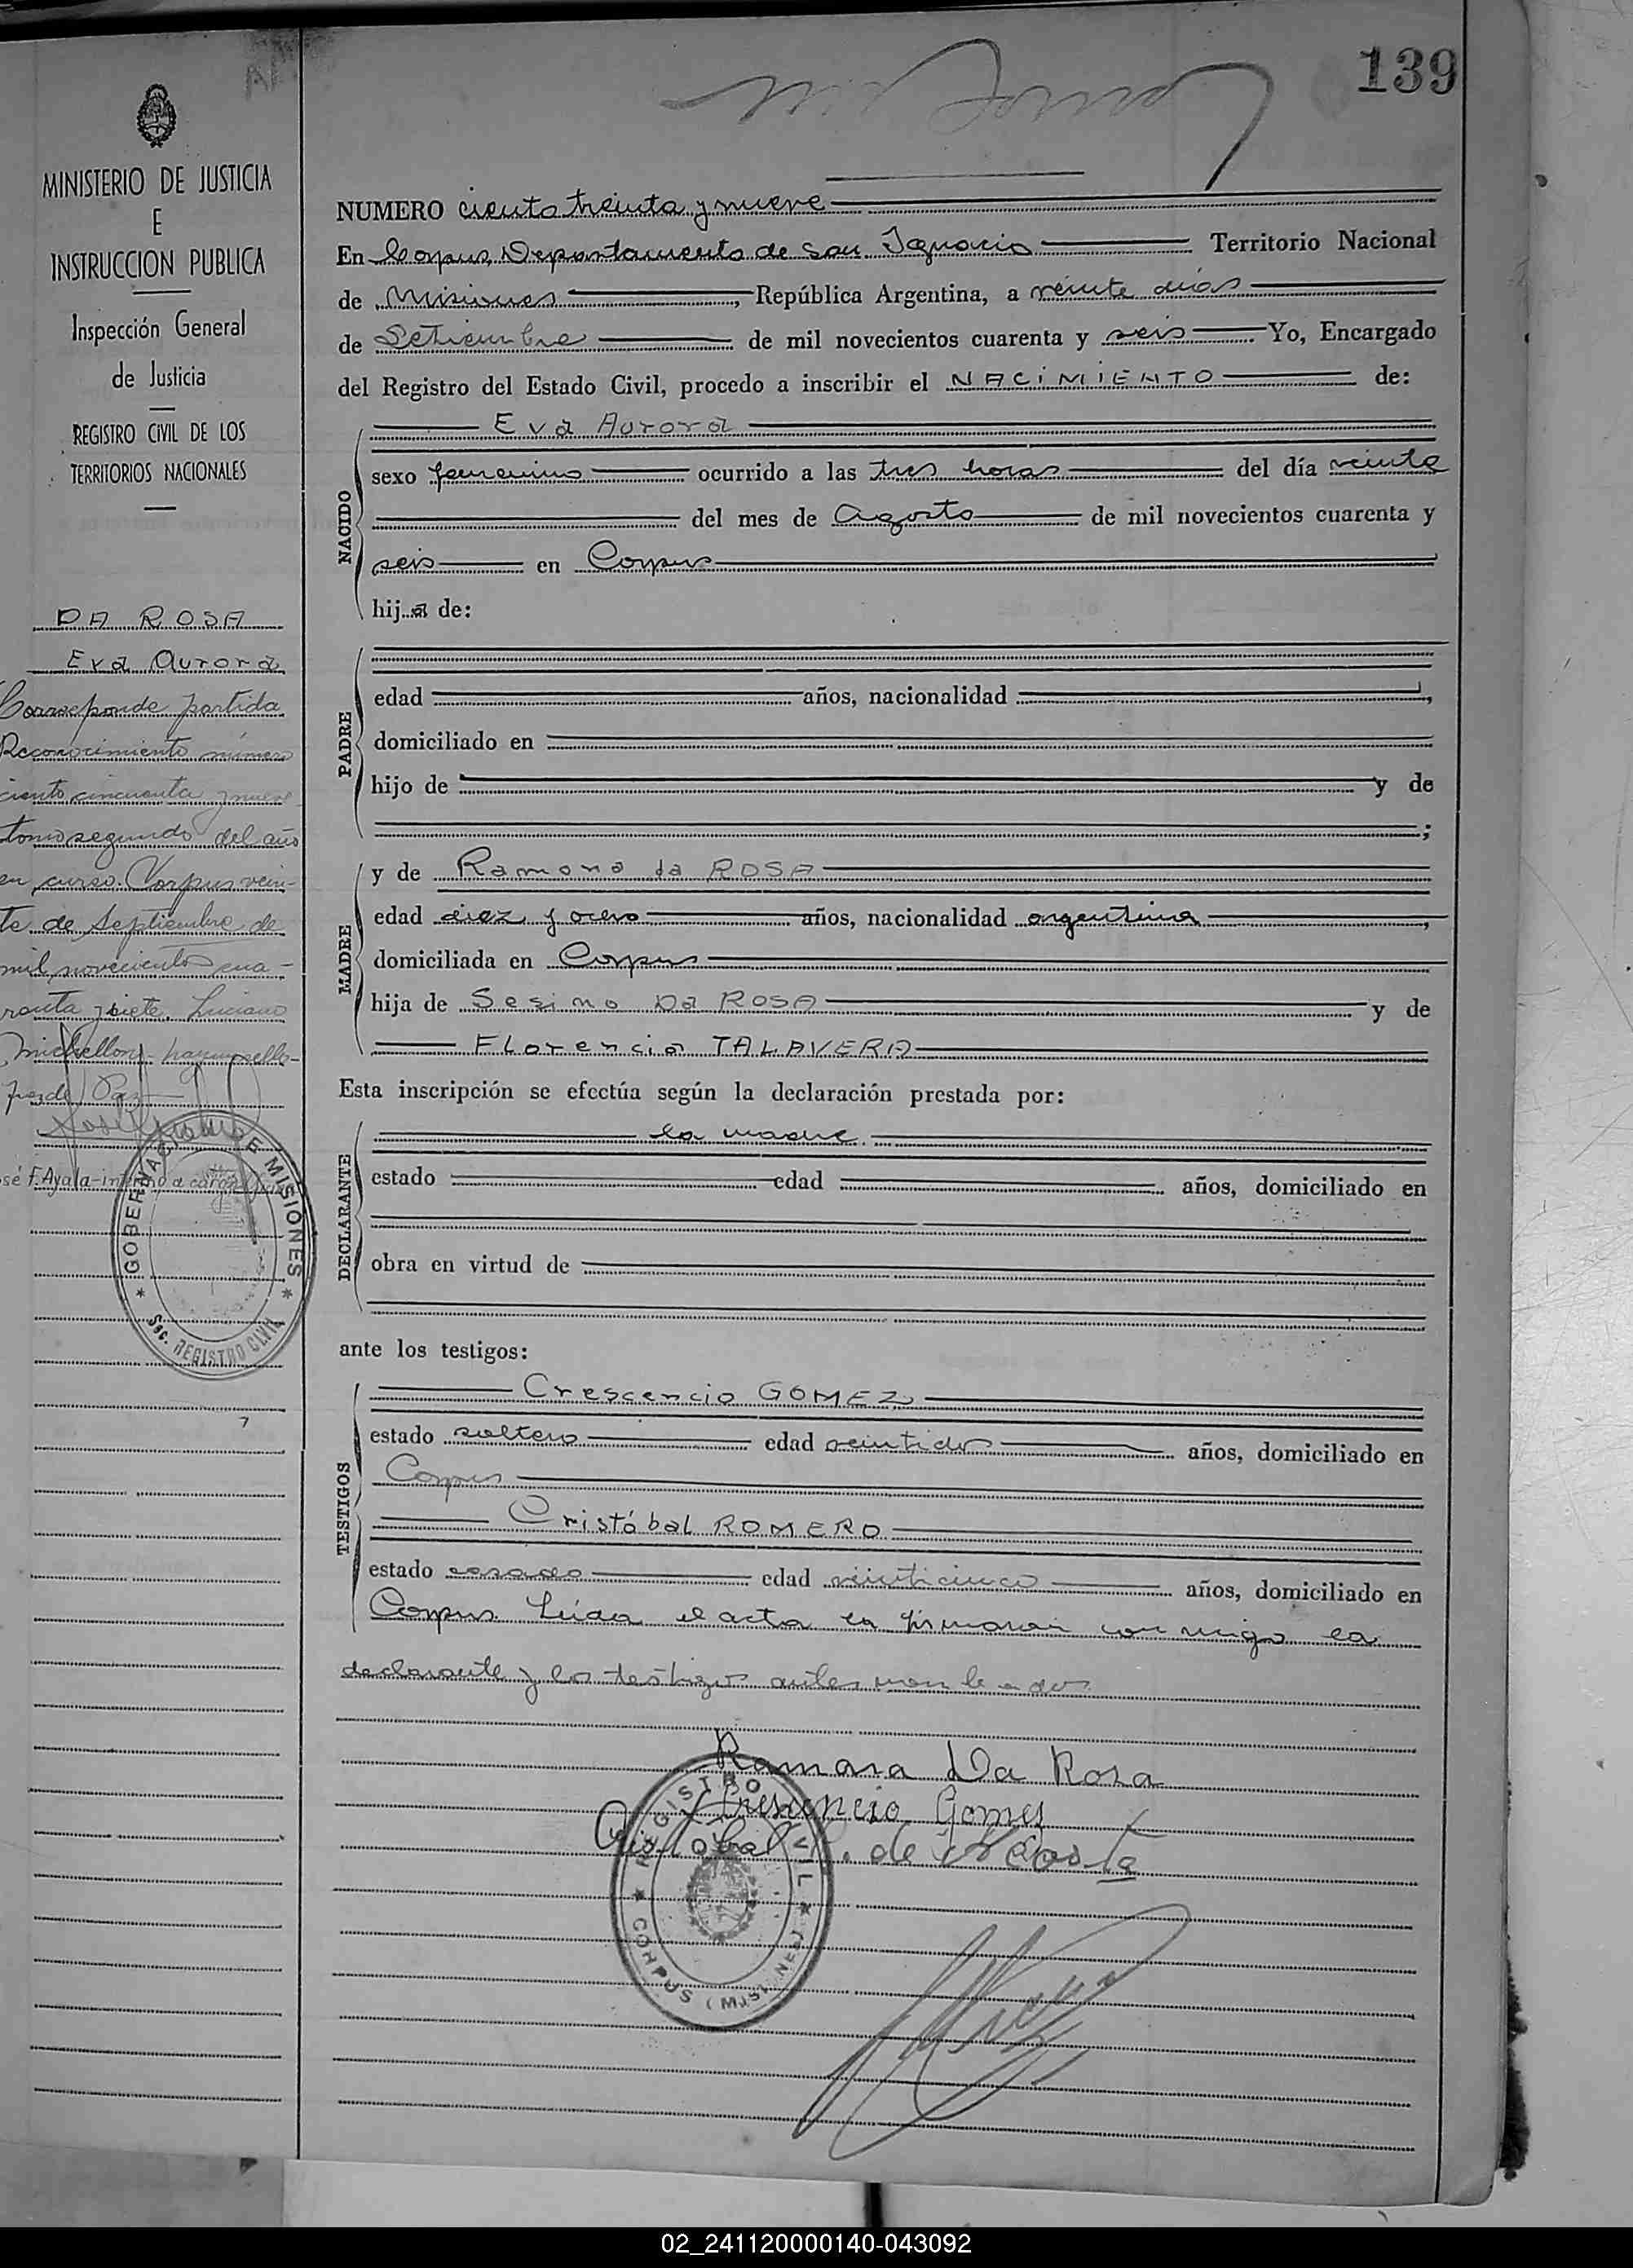 139
MINISTERIO DE JUSTICIA
E
INSTRUCCION PUBLICA
Inspección General
de Justicia
REGISTRO CIVIL DE LOS
TERRITORIOS NACIONALES
DA ROSA
Eva Aurora
Corresponde partida
Reconocimiento número
ciento cincuenta y nueve
tomo segundo del año
en curso. Corpus vein-
te de Septiembre de
mil novecientos cua-
renta y siete. Luciano
Juez de Paz
sé F. Ayala-interino a cargo
GOBERNACION DE MISIONES
Sec. REGISTRO CIVIL
NUMERO ciento treinta y nueve
En Corpus, Departamento de San Ignacio Territorio Nacional
de Misiones, República Argentina, a veinte dias
de Setiembre de mil novecientos cuarenta y seis Yo, Encargado
del Registro del Estado Civil, procedo a inscribir el NACIMIENTO de:
NACIDO
Eva Aurora
sexo femenino ocurrido a las tres horas del día veinte
del mes de Agosto de mil novecientos cuarenta y
seis en Corpus
hij a de:
PADRE
edad años, nacionalidad ,
domiciliado en
hijo de y de
;
MADRE
y de Ramona da ROSA
edad diez y ocho años, nacionalidad argentina,
domiciliada en Corpus
hija de Sesimo Da ROSA y de
Florencia TALAVERA
Esta inscripción se efectúa según la declaración prestada por:
DECLARANTE
la madre
estado edad años, domiciliado en
obra en virtud de
ante los testigos:
TESTIGOS
Crescencio GOMEZ
estado soltero edad veintidos años, domiciliado en
Corpus
Cristóbal ROMERO
estado casado edad veinticinco años, domiciliado en
Corpus. Leida el acta la firmaron conmigo la
declarante y los testigos antes nombrados
Ramona Da Rosa
Cresencio Gomes
Cristobal R. de Acosta
REGISTRO CIVIL
CORPUS (MISIONES)
02_241120000140-043092